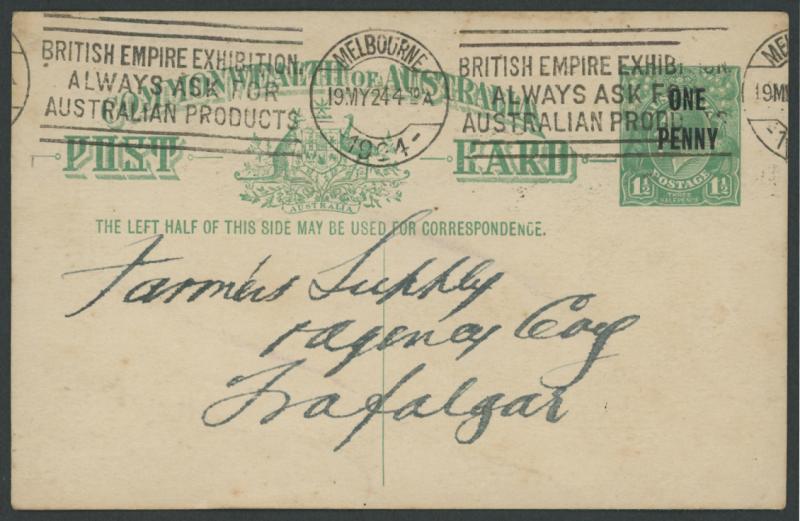 BRITISH EMPIRE EXHIBITION,
ALWAYS ASK FOR
AUSTRALIAN PRODUCTS
MELBOURNE
19MY24 4-30A
1924-
BRITISH EMPIRE EXHIBITION,
ALWAYS ASK FO
AUSTRALIAN PRODU
MEL
19MY
-1
COMMONWEALTH OF AUSTRALIA
POST CARD
AUSTRALIA
ONE
PENNY
1½ POSTAGE 1½
THREE
HALFPENCE
THE LEFT HALF OF THIS SIDE MAY BE USED FOR CORRESPONDENCE.
Farmers Supply
&Agency Coy
Trafalgar